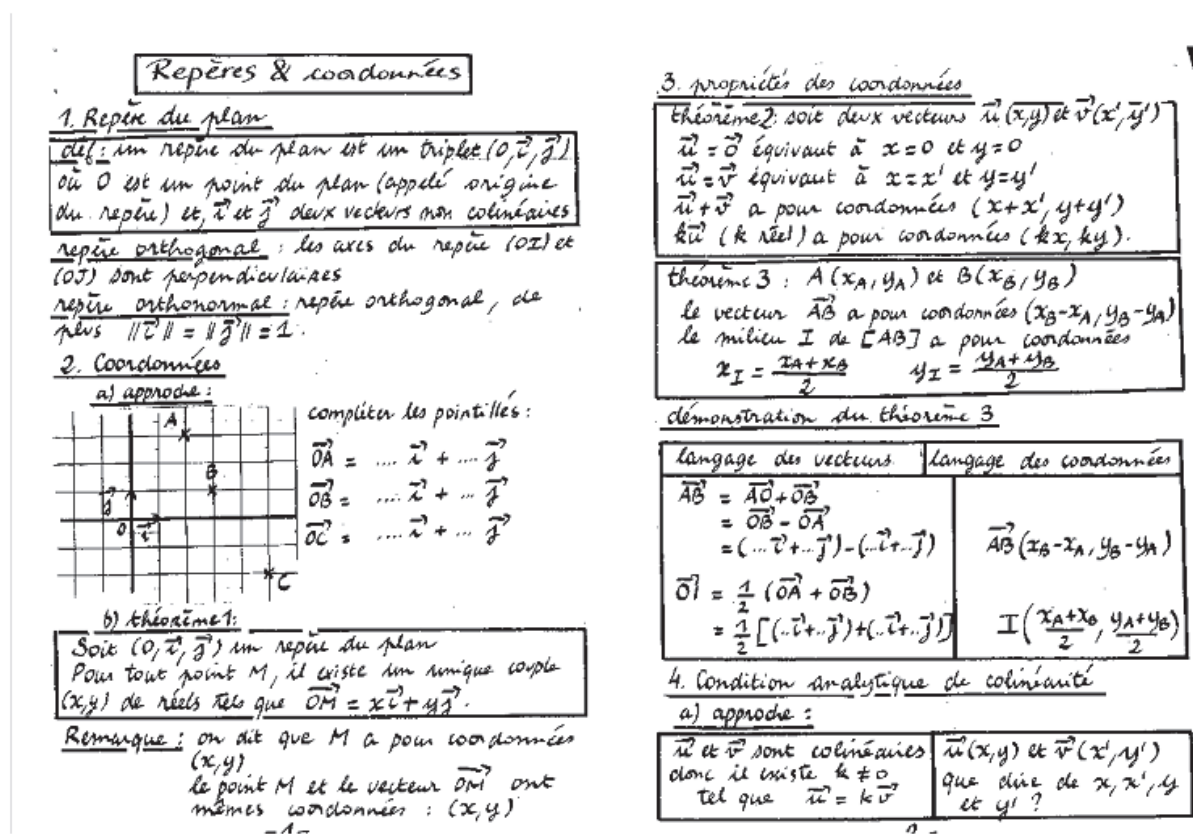 Repères & coordonnées
1. Repère du plan
déf : un repère du plan est un triplet (O, i⃗, j⃗)
où O est un point du plan (appelé origine
du repère) et, i⃗ et j⃗ deux vecteurs non colinéaires
repère orthogonal : les axes du repère (OI) et
(OJ) sont perpendiculaires
repère orthonormal : repère orthogonal, de
plus ||i⃗|| = ||j⃗|| = 1.
2. Coordonnées
a) approche :
compléter les pointillés :
A
B
j⃗
O
i⃗
C
OA⃗ = .... i⃗ + .... j⃗
OB⃗ = .... i⃗ + ... j⃗
OC⃗ = .... i⃗ + ... j⃗
b) théorème 1:
Soit (O, i⃗, j⃗) un repère du plan
Pour tout point M, il existe un unique couple
(x,y) de réels tels que OM⃗ = xi⃗ + yj⃗.
Remarque : on dit que M a pour coordonnées
(x,y)
le point M et le vecteur OM⃗ ont
mêmes coordonnées : (x,y)
-1-
3. propriétés des coordonnées
théorème 2: soit deux vecteurs u⃗(x,y) et v⃗(x',y')
u⃗ = 0⃗ équivaut à x=0 et y=0
u⃗ = v⃗ équivaut à x=x' et y=y'
u⃗+v⃗ a pour coordonnées (x+x', y+y')
ku⃗ (k réel) a pour coordonnées (kx, ky).
théorème 3 : A(xA, yA) et B(xB, yB)
le vecteur AB⃗ a pour coordonnées (xB-xA, yB-yA)
le milieu I de [AB] a pour coordonnées
xI = (xA+xB)/2 yI = (yA+yB)/2
démonstration du théorème 3
langage des vecteurs langage des coordonnées
AB⃗ = AO⃗ + OB⃗
= OB⃗ - OA⃗
= (... i⃗ +... j⃗) - (... i⃗ +... j⃗) AB⃗ (xB-xA, yB-yA)
OI⃗ = 1/2 (OA⃗ + OB⃗)
= 1/2 [(.. i⃗ +.. j⃗)+(.. i⃗ +.. j⃗)] I((xA+xB)/2, (yA+yB)/2)
4. Condition analytique de colinéarité
a) approche :
u⃗ et v⃗ sont colinéaires
donc il existe k ≠ 0
tel que u⃗ = k v⃗
u⃗(x,y) et v⃗(x',y')
que dire de x, x', y
et y' ?